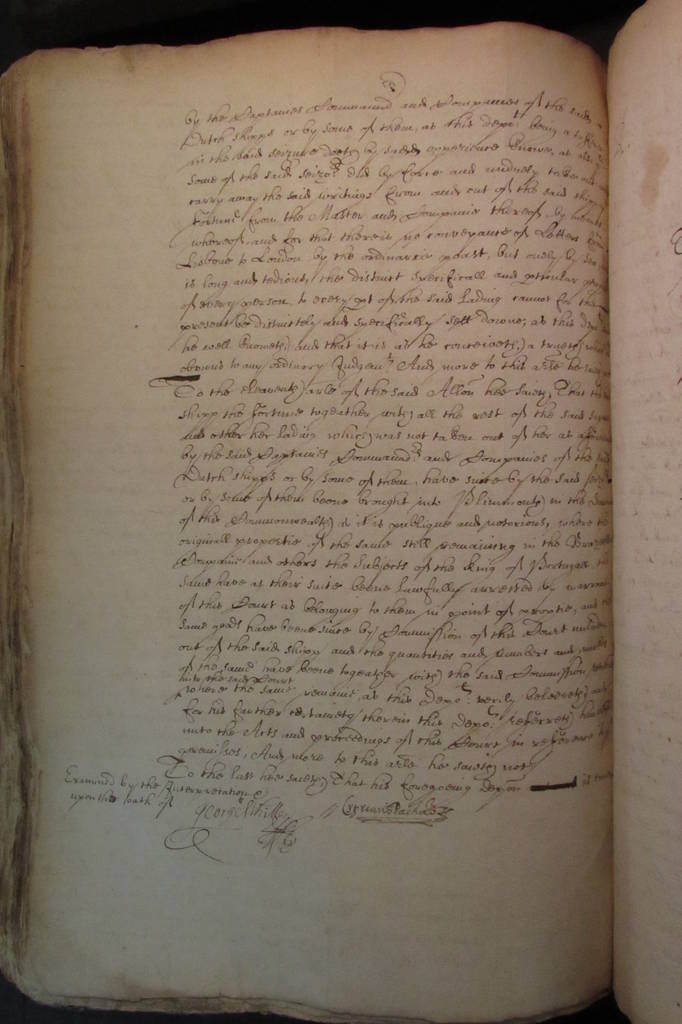 by the Captaines Command and Companies of the said
Dutch shipps or by some of them, as this depot being a
in the said seizure doeth by sadd experience knowe, as alsoe
some of the said seizors did by force and violently take and
carry away the said writings from and out of the said shipp
fortune from the Master and Companie thereof, by
whereof, and for that there is no conveyance of Letters from
Lisbone to London by the ordinarie poast, but onely by sea
is long and tedious, the distinct specificall and perticular
of every person, to every pt of the said lading cannot for the
present be distinctely and specifically sett downe, as this
he well knoweth, and that it is as he conceiveth, a trueth
obvious to any ordinary Judgemt. And more to this arle he
To the eleaventh arle of the said Allon hee saieth, That the
shipp the fortune togeather with all the rest of the said
and other her lading which was not taken out of her as
by the said Captaines Commandrs and Companies of the said
Dutch shipps or by some of them, have since by the said
or by some of them beene brought into Plimmouth in the
of this Commonwealth as it is publique and notorious, where the
originall propertie of the same still remaining in the Brazil
Companie and others the Subjects of the King of Portugall, the
same have at their suite beene lawfully arrested by warrant
of this Court as belonging to them in point of proptie, and
same goods have beene since by Commission of this Court
out of the said shipp and the quantities and numbers and
of the same have beene togeather with the said Commission,
into the said Court
where the same remaine as this Depot verily beleeveth, and
for his further certainety therein this Depot referreth
unto the Acts and proceedings of this Court in reference
premisses, And more to this arle he saieth not
To the last hee saieth, That his foregoeing Depon is true
Examined by the Interpretation
upon the oath of